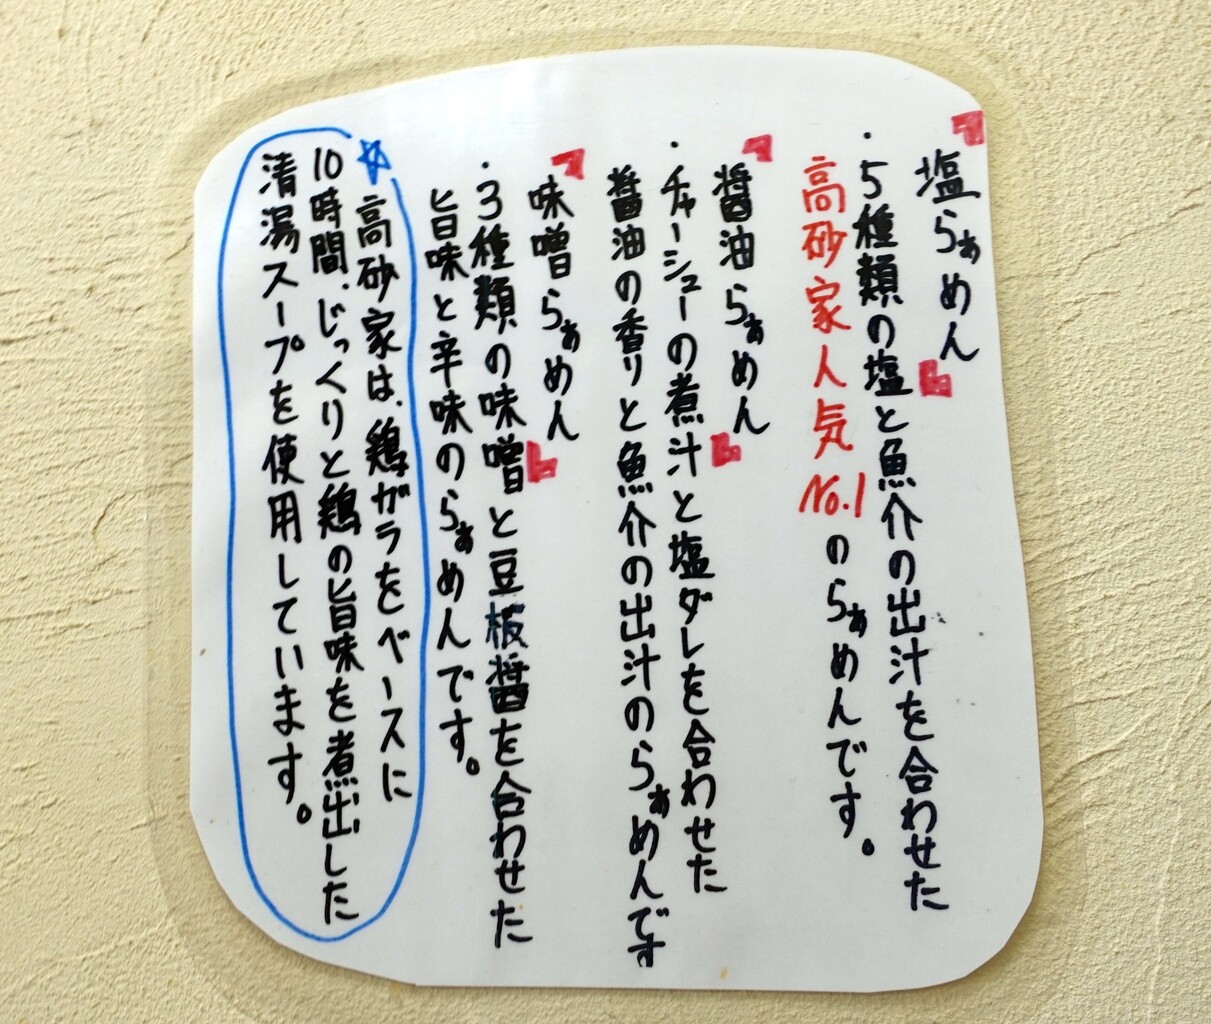 「塩らぁめん」
・5種類の塩と魚介の出汁を合わせた
高砂家人気No.1のらぁめんです。
「醤油らぁめん」
・チャーシューの煮汁と塩ダレを合わせた
醤油の香りと魚介の出汁のらぁめんです
「味噌らぁめん」
・3種類の味噌と豆板醤を合わせた
旨味と辛味のらぁめんです。
☆高砂家は、鶏ガラをベースに
10時間、じっくりと鶏の旨味を煮出した
清湯スープを使用しています。